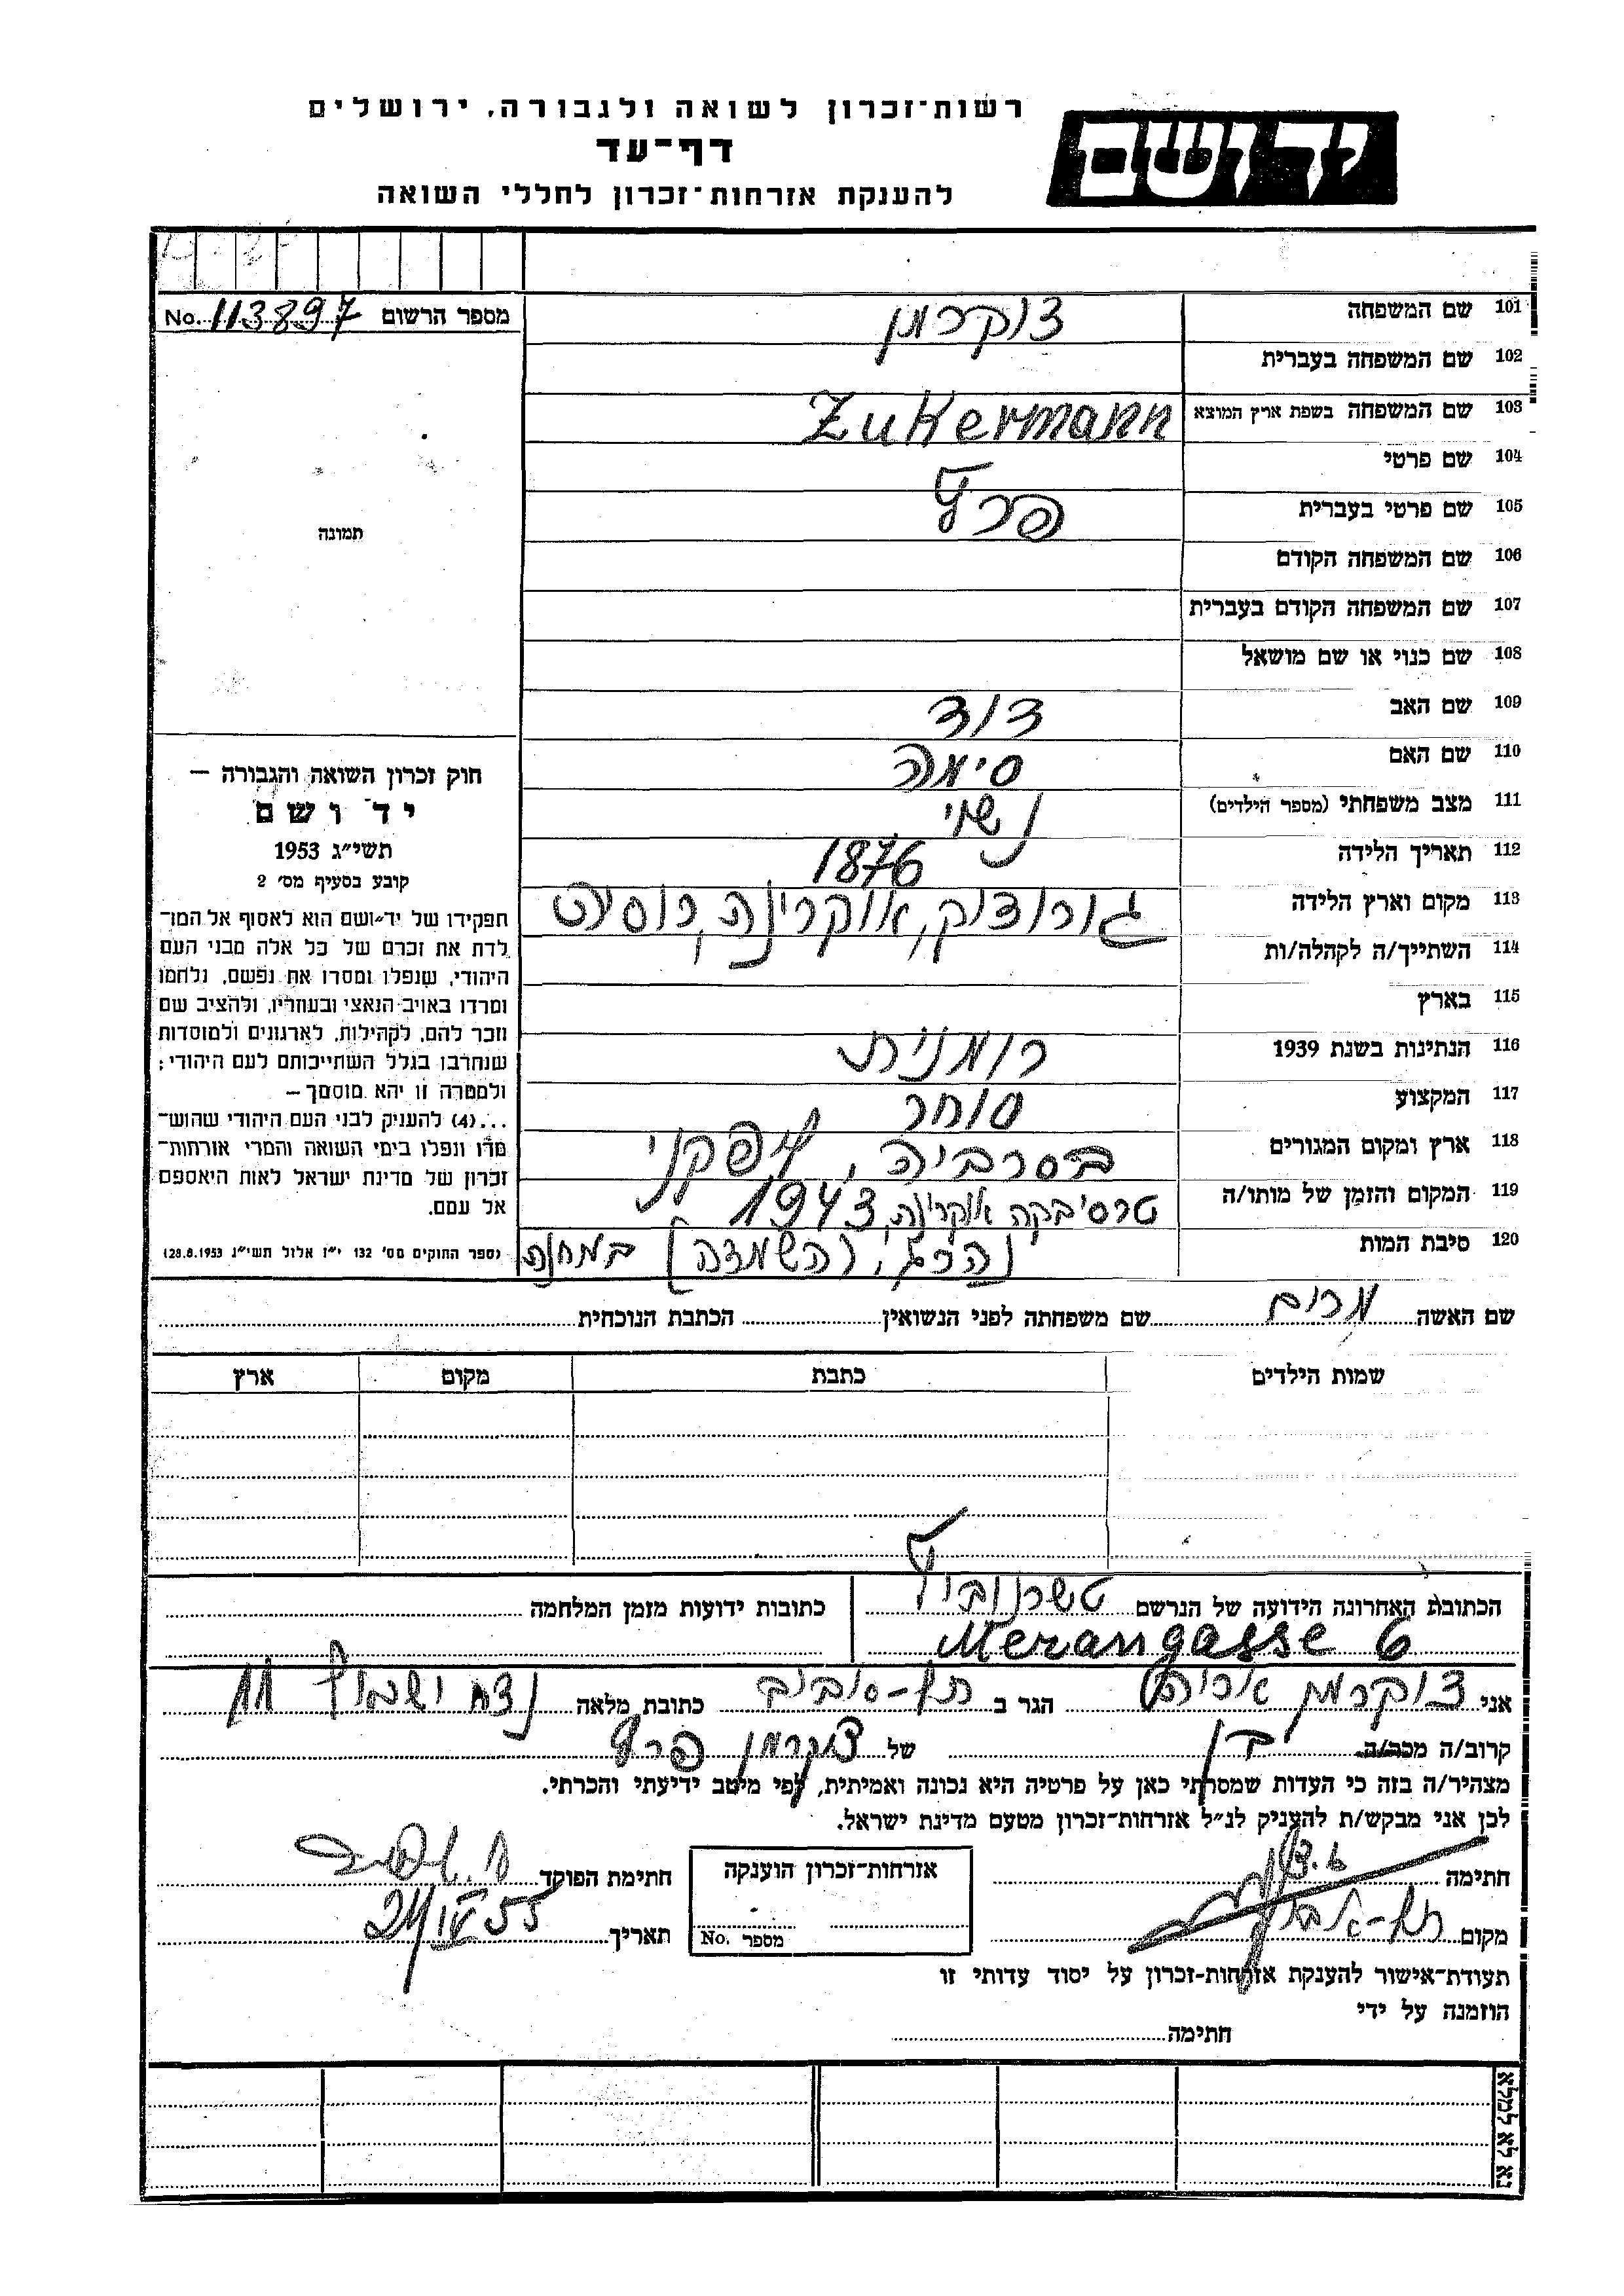 רשות־זכרון לשואה ולגבורה, ירושלים
דף־עד
להענקת אזרחות־זכרון לחללי השואה
יד ושם
מספר הרשום No. 113897
תמונה
101 שם המשפחה צוקרמן
102 שם המשפחה בעברית
103 שם המשפחה בשפת ארץ המוצא Zukermann
104 שם פרטי
105 שם פרטי בעברית פרץ
106 שם המשפחה הקודם
107 שם המשפחה הקודם בעברית
108 שם כנוי או שם מושאל
109 שם האב דוד
110 שם האם סימה
111 מצב משפחתי (מספר הילדים) נשוי
112 תאריך הלידה 1876
113 מקום וארץ הלידה גורודוק, אוקרינה, רוסיה
114 השתייך/ה לקהלה/ות
115 בארץ
116 הנתינות בשנת 1939 רומנית
117 המקצוע סוחר
118 ארץ ומקום המגורים בסרביה, ליפקני
119 המקום והזמן של מותו/ה טרסיבקה אוקרינה, 1943
120 סיבת המות נהרג, (השמדה) במחנה
חוק זכרון השואה והגבורה –
יד ושם
תשי״ג 1953
קובע בסעיף מס׳ 2
תפקידו של יד־ושם הוא לאסוף אל המו־
לדת את זכרם של כל אלה מבני העם
היהודי, שנפלו ומסרו את נפשם, נלחמו
ומרדו באויב הנאצי ובעוזריו, ולהציב שם
וזכר להם, לקהילות, לארגונים ולמוסדות
שנחרבו בגלל השתייכותם לעם היהודי;
ולמטרה זו יהא מוסמך –
...(4) להעניק לבני העם היהודי שהוש־
מדו ונפלו בימי השואה והמרי אזרחות־
זכרון של מדינת ישראל לאות היאספם
אל עמם.
(ספר החוקים מס׳ 132 י״ז אלול תשי״ג 28.8.1953)
שם האשה מרים שם משפחתה לפני הנשואין הכתבת הנוכחית
שמות הילדים כתבת מקום ארץ
הכתובת האחרונה הידועה של הנרשם טשרנוביץ
Merangasse 6
כתובות ידועות מזמן המלחמה
אני צוקרמן אריה הגר ב תל-אביב כתובת מלאה נצח ישראל 11
קרוב/ה מכר/ה בן של צוקרמן פרץ
מצהיר/ה בזה כי העדות שמסרתי כאן על פרטיה היא נכונה ואמיתית, לפי מיטב ידיעתי והכרתי.
לכן אני מבקש/ת להעניק לנ״ל אזרחות־זכרון מטעם מדינת ישראל.
חתימה
אזרחות־זכרון הוענקה
מספר No.
חתימת הפוקד
מקום תל-אביב
תאריך 24/IV 55
תעודת־אישור להענקת אזרחות-זכרון על יסוד עדותי זו
הוזמנה על ידי
חתימה
נא לא למלא